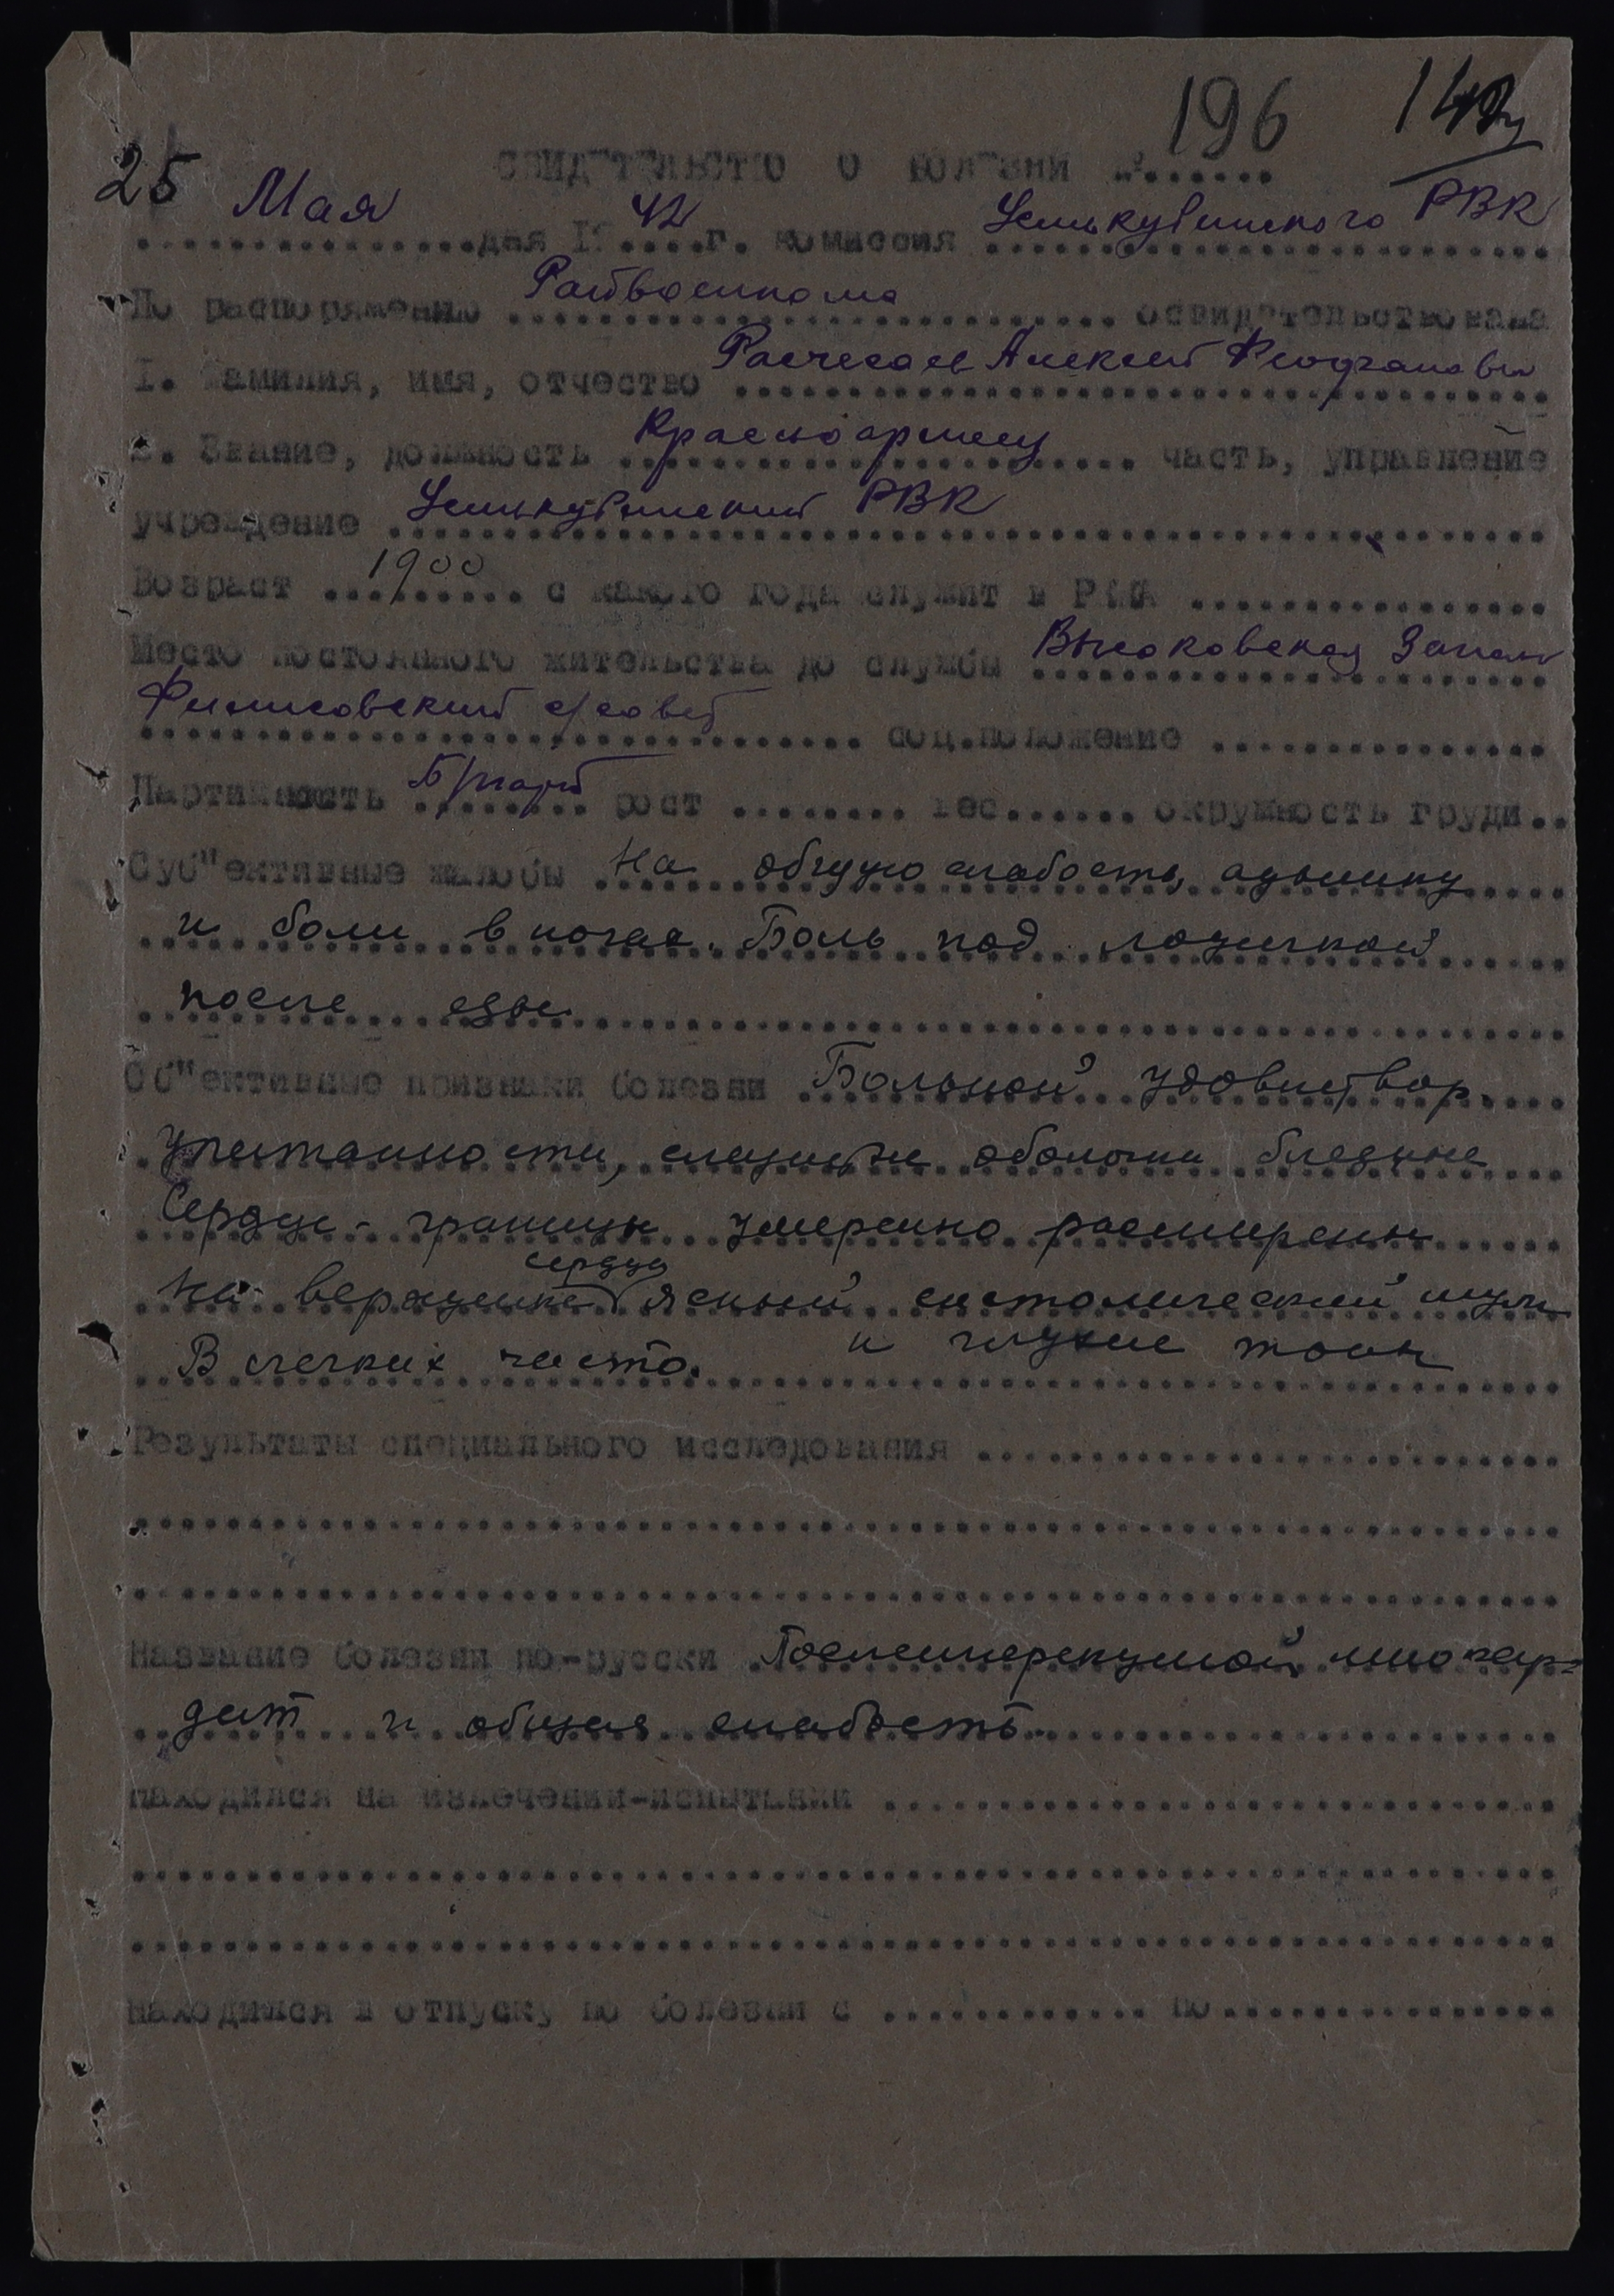 196 142
СВИДЕТЕЛЬСТВО О БОЛЕЗНИ №.......
25 Мая дня 19 42 г. комиссия Усть-кубинского РВК
По распоряжению Райвоенкома освидетельствовала
1. Фамилия, имя, отчество Расчесаев Алексей
2. Звание, должность Красноармеец часть, управление
учреждение Усть-кубинский РВК
Возраст 1900 с какого года служит в РККА
Место постоянного жительства до службы Высоковская Запань
Филисовский с/совет соц.положение
Партийность Б/парт рост ........ вес...... окружность груди..
Суб"ективные жалобы На общую слабость, одышку
и боли в ногах. Боль под ложечкой
после еды.
Об"ективные признаки болезни Больной удовлетвор.
упитанности, слизистые оболочки бледные
Сердце - границы умеренно расширены
На верхушке сердца ясный систолический шум
и глухие тоны
В легких чисто.
Результаты специального исследования
Название болезни по-русски миокар-
дит и общая слабость.
находился на излечении-испытании
находился в отпуску по болезни с ............ по